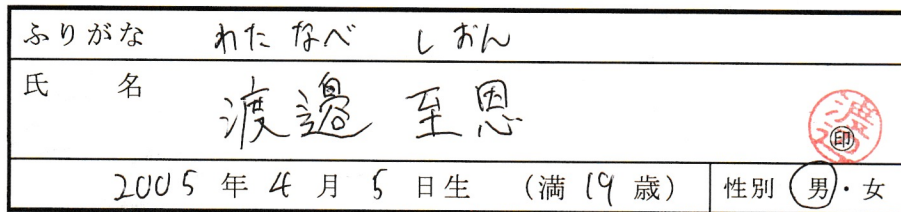 ふりがな わたなべ しおん
氏 名 渡邉 至恩 ㊞
2005 年 4 月 5 日生 (満 19 歳) 性別 男・女